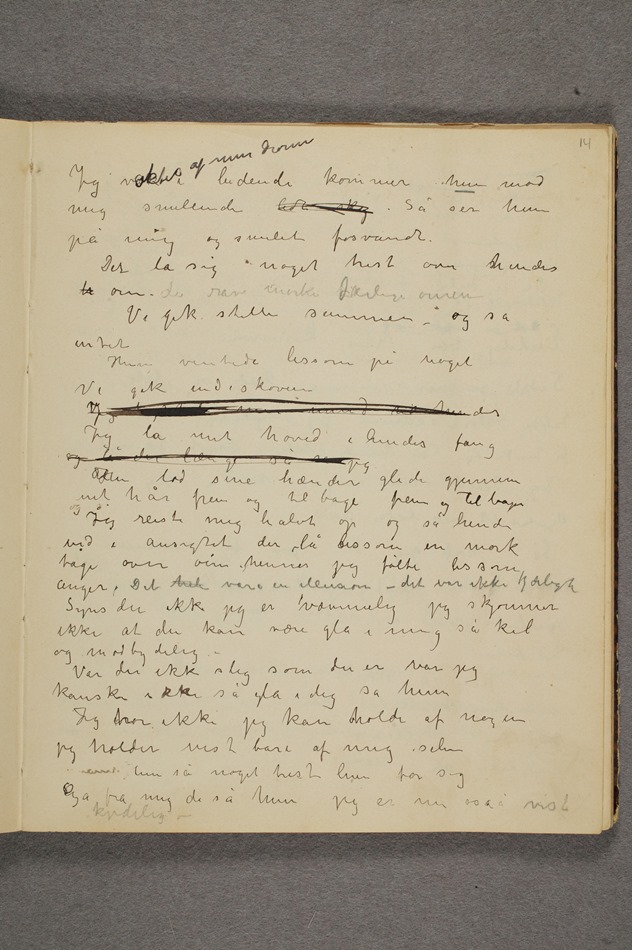 14
vækkes af min drøm
Jeg ledende kommer hun mod
mig smilende . Så ser hun
på mig og smilet forsvandt.
Det la sig noget trist over hendes
om.
Vi gik stille sammen – og sa
intet
Hun ventede lissom på noget
Vi gik ind i skoven
Jeg la mit hoved i hendes fang
Hun lod sine hænder glide gjennem
mit hår frem og tilbage frem og tilbage
og Jeg reiste mig halvt op og så hende
ind i ansigtet der lå lissom en mørk
tåge over henner jeg følte lissom
anger. Det var en illusion – det var ikke kjærlighet
Synes du ikk jeg er væmmelig jeg skjønner
ikke at du kan være gla i mig så kel
og modbydelig –
Var du ikk slig som du er var jeg
kanske ikke så gla i dig sa hun
Jeg tror ikke jeg kan holde af nogen
jeg holder vist bare af mig selv
hun så noget trist hen for sig
Gå fra mig du så hun jeg er nu også vist
kjedelig –